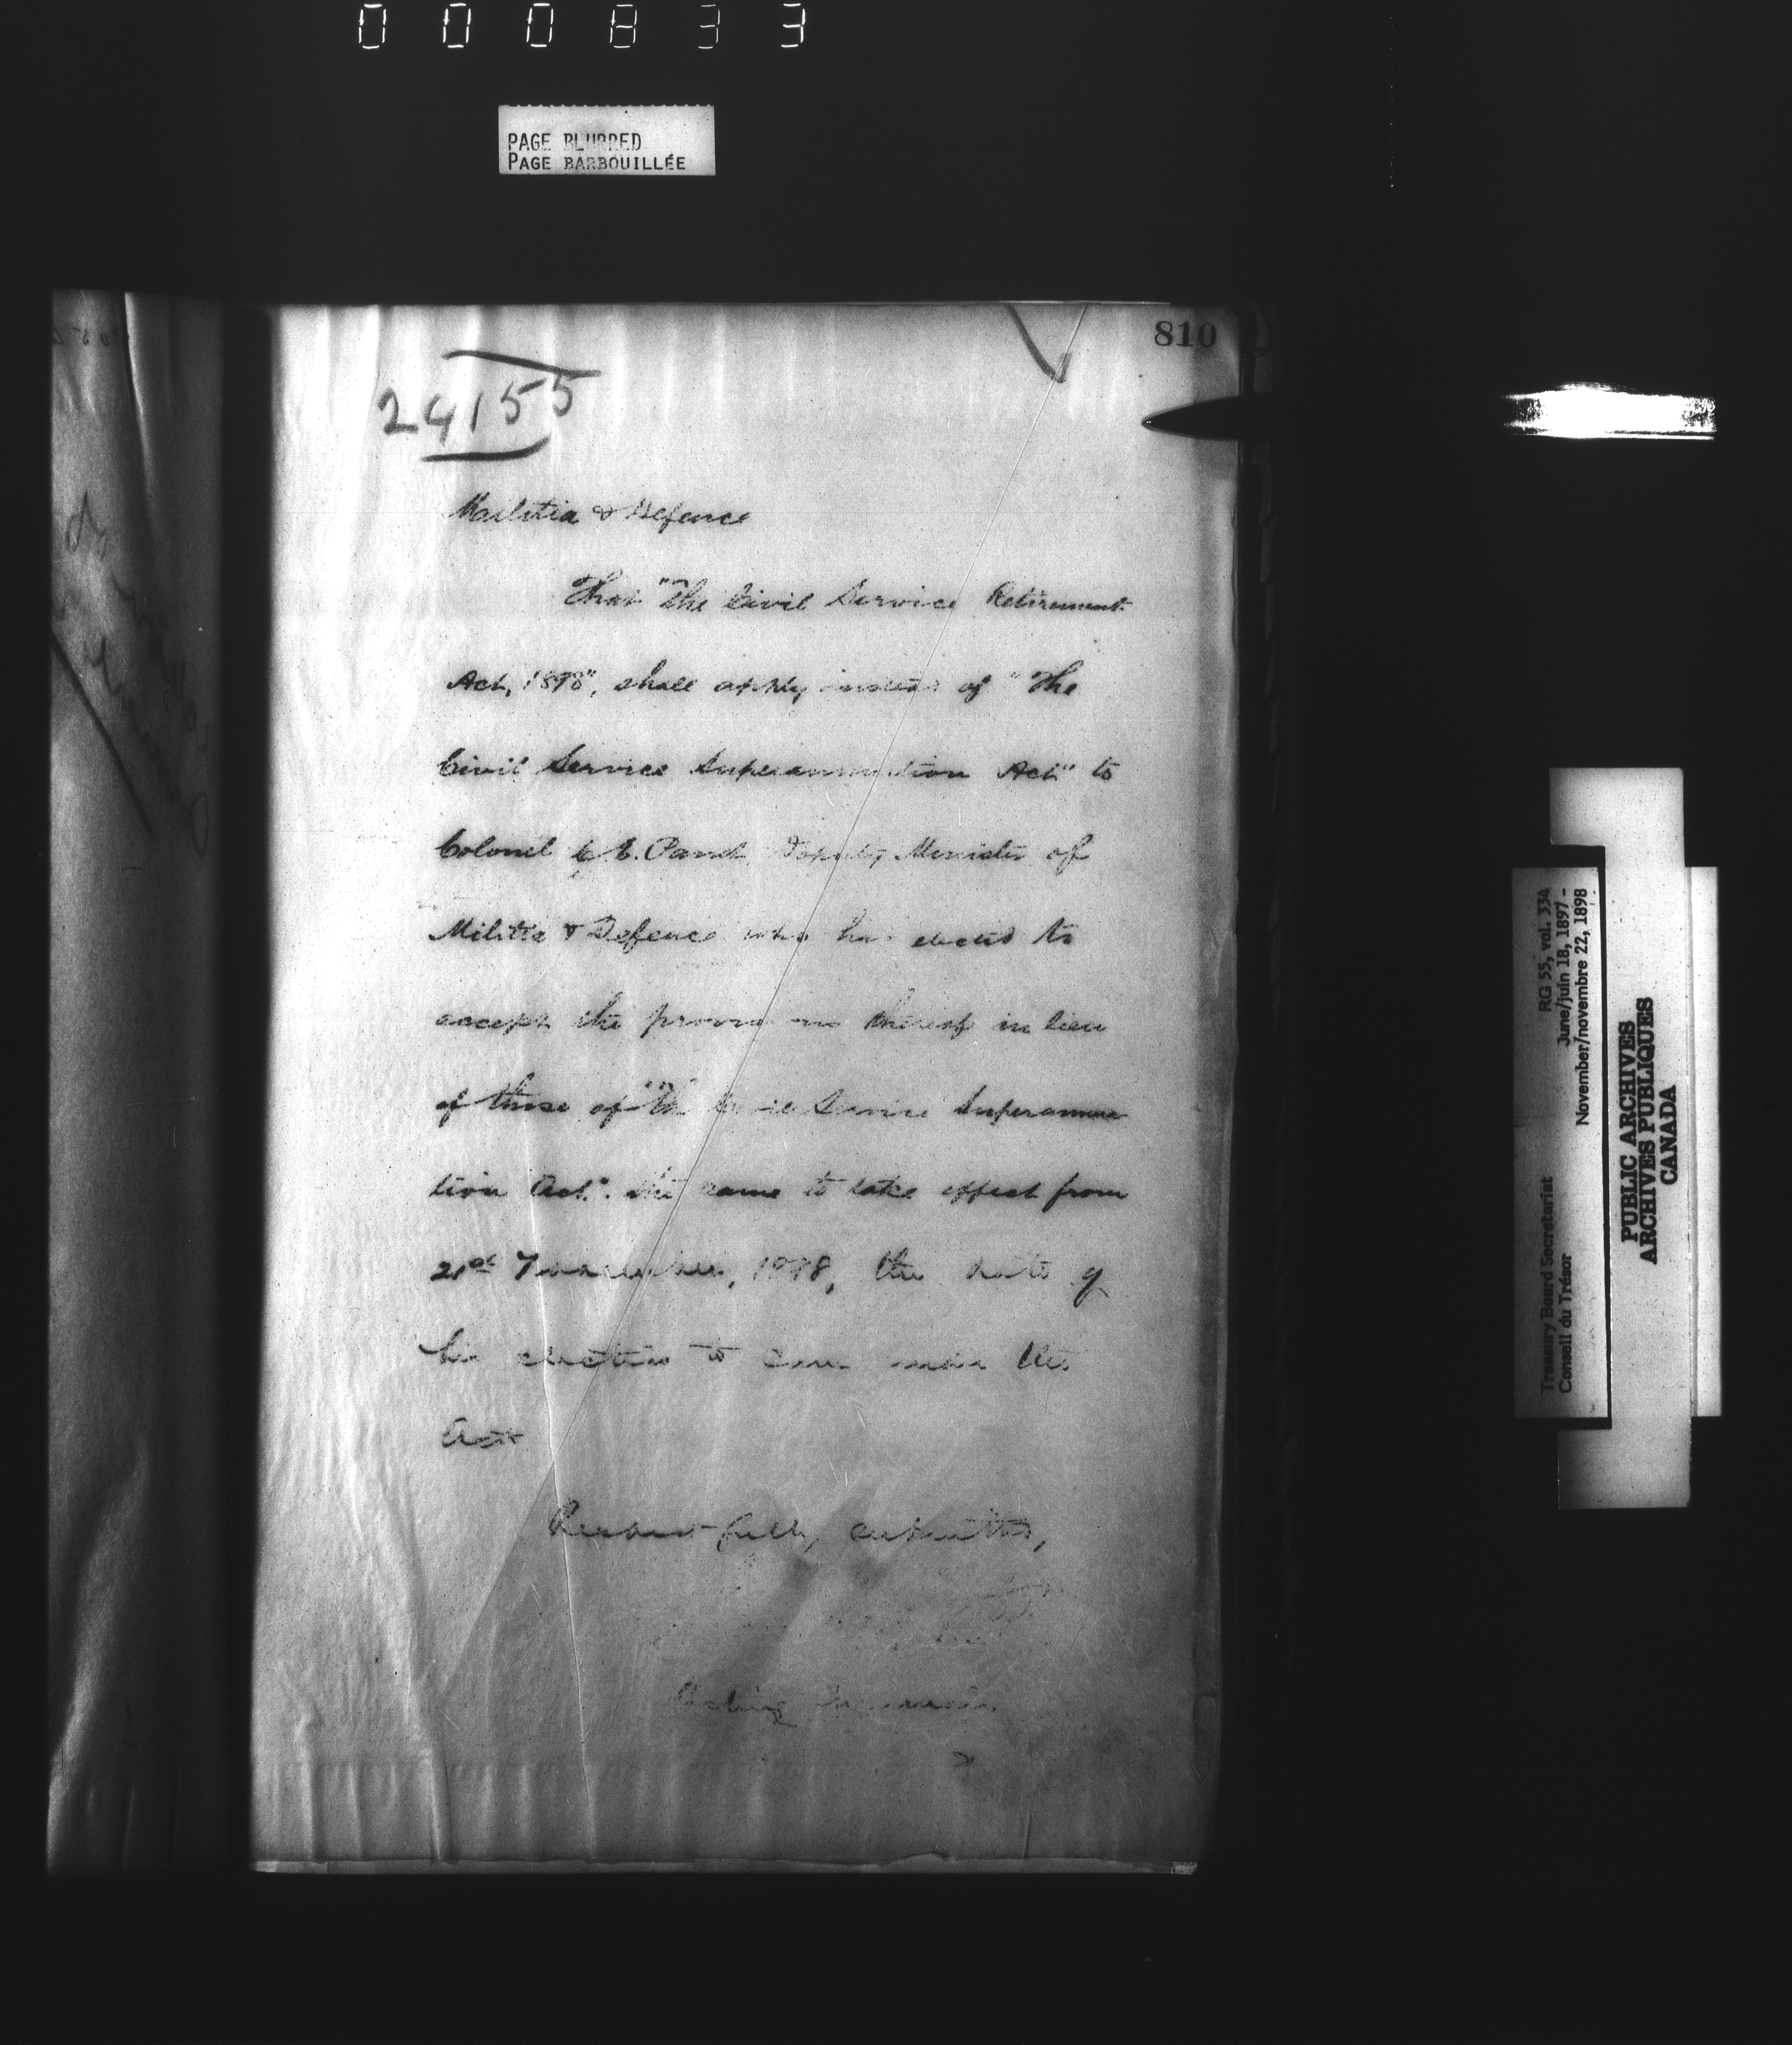 000833
PAGE BLURRED
PAGE BARBOUILLÉE
810
24155
Militia & Defence
That "The Civil Service Retirement
Act, 1898", shall apply instead of "The
Civil Service Superannuation Act" to
Colonel C. E. Panet Deputy Minister of
Militia & Defence who has elected to
accept the provisions thereof in lieu
of those of "The Civil Service Superannua
tion Act". the same to take effect from
21st 1898, the date of
his election to come under the
Act
submitted,
Acting
RG 55, vol. 334
June/juin 18, 1897 -
November/novembre 22, 1898
Treasury Board Secretariat
Conseil du Trésor
PUBLIC ARCHIVES
ARCHIVES PUBLIQUES
CANADA